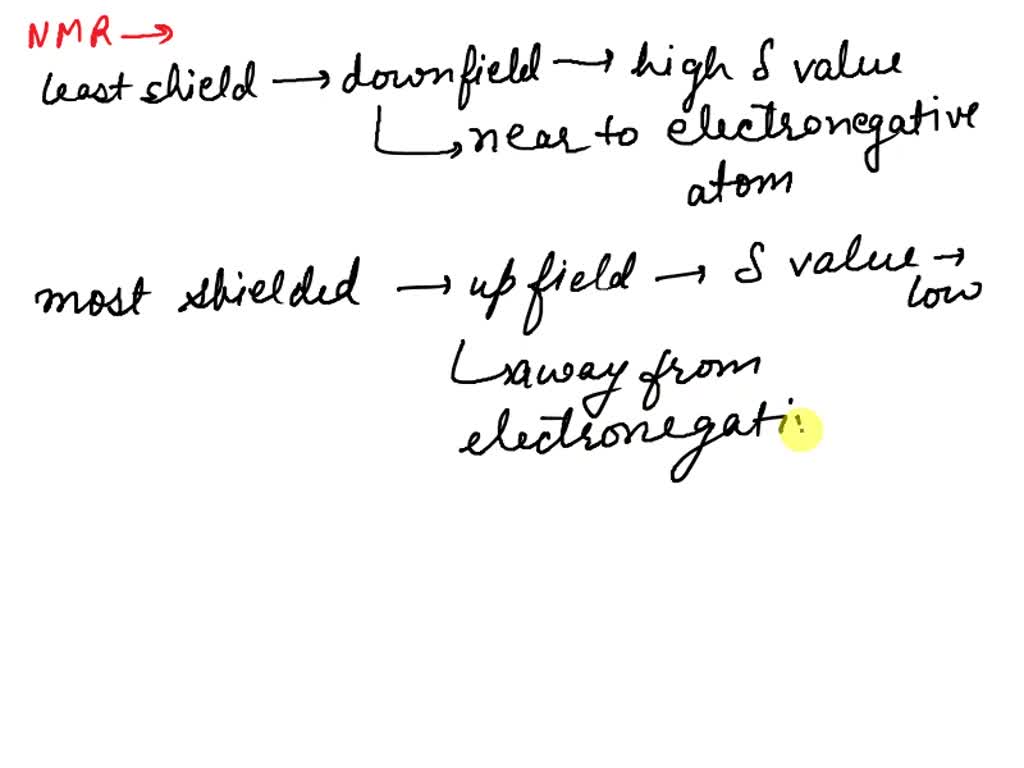 NMR →
least shield → downfield → high δ value
↳ near to electronegative
atom
most shielded → upfield → δ value →
low
↳ away from
electronegati